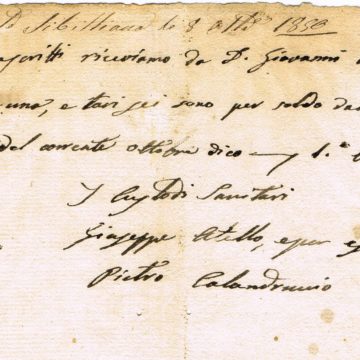 Sibilliana le 8 8bre 1850
scritti riceviamo da D. Giovanni
una, e tarì sei sono per soldo da
del corrente ottobre dico — 1.
I Custodi Sanitari
Giuseppe Atello, e per
Pietro Calandruccio